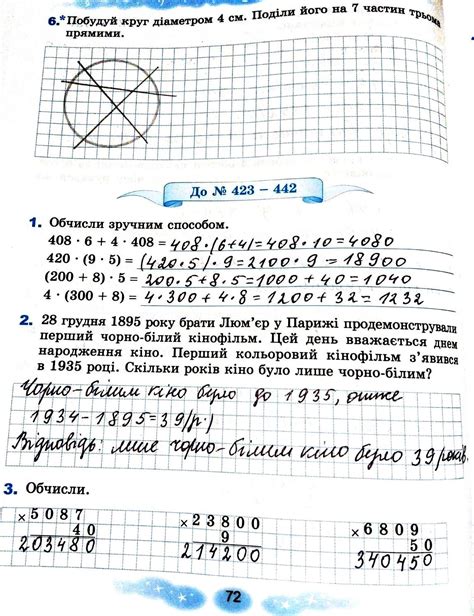 6.* Побудуй круг діаметром 4 см. Поділи його на 7 частин трьома
прямими.
До № 423 – 442
1. Обчисли зручним способом.
408 · 6 + 4 · 408 = 408 · (6+4) = 408 · 10 = 4080
420 · (9 · 5) = (420 · 5) · 9 = 2100 · 9 = 18900
(200 + 8) · 5 = 200 · 5 + 8 · 5 = 1000 + 40 = 1040
4 · (300 + 8) = 4 · 300 + 4 · 8 = 1200 + 32 = 1232
2. 28 грудня 1895 року брати Люм'єр у Парижі продемонстрували
перший чорно-білий кінофільм. Цей день вважається днем
народження кіно. Перший кольоровий кінофільм з'явився
в 1935 році. Скільки років кіно було лише чорно-білим?
Чорно-білим кіно було до 1935, отже
1934 - 1895 = 39 (р.)
Відповідь: лише чорно-білим кіно було 39 років.
3. Обчисли.
×5087 ×23800 ×6809
40 9 50
203480 214200 340450
72